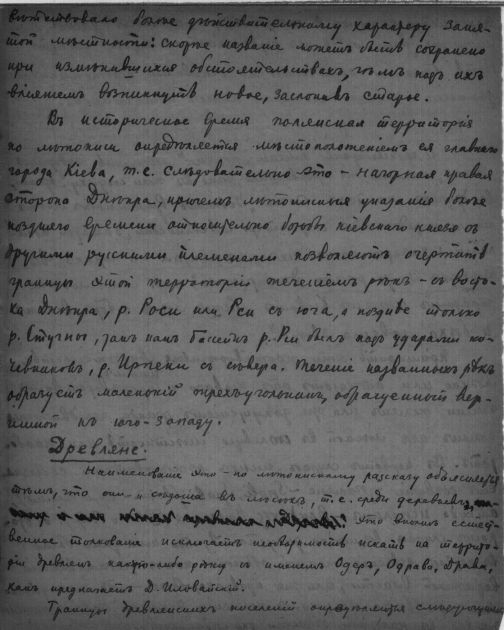 вѣтствовало болѣе дѣйствительному характеру заня-
той мѣстности: скорѣе названіе можетъ быть сохранено
при измѣнившихся обстоятельствахъ, чѣмъ подъ ихъ
вліяніемъ возникнуть новое, заслонивъ старое.
Въ историческое время полянская территорія
по лѣтописи опредѣляется мѣстоположеніемъ ея главнаго
города Кіева, т.е. слѣдовательно это – нагорная правая
сторона Днѣпра, причемъ лѣтописныя указанія болѣе
поздняго времени относительно борьбы кіевскаго князя съ
другими русскими племенами позволяютъ очертить
границы этой территоріи теченіемъ рѣкъ – съ восто-
ка Днѣпра, р. Роси или Рси съ юга, а позднѣе только
р. Стугны, такъ какъ бассейнъ р. Рси былъ подъ ударами ко-
чевниковъ, р. Ирпени съ сѣвера. Теченіе названныхъ рѣкъ
образуетъ маленькій трехъугольникъ, обращенный вер-
шиной къ юго-западу.
Древляне.
Наименованіе это – по лѣтописному разсказу объясняется
тѣмъ, что они – сѣдоша въ лѣсахъ, т.е. среди деревьевъ,
Это вполнѣ естест-
венное толкованіе исключаетъ необходимость искать на террито-
ріи древлянъ какую-либо рѣку съ именемъ Одеръ, Одрава, Драва,
какъ предлагаетъ Д. Иловайскій.
Границы древлянскихъ поселеній опредѣляются слѣдующими